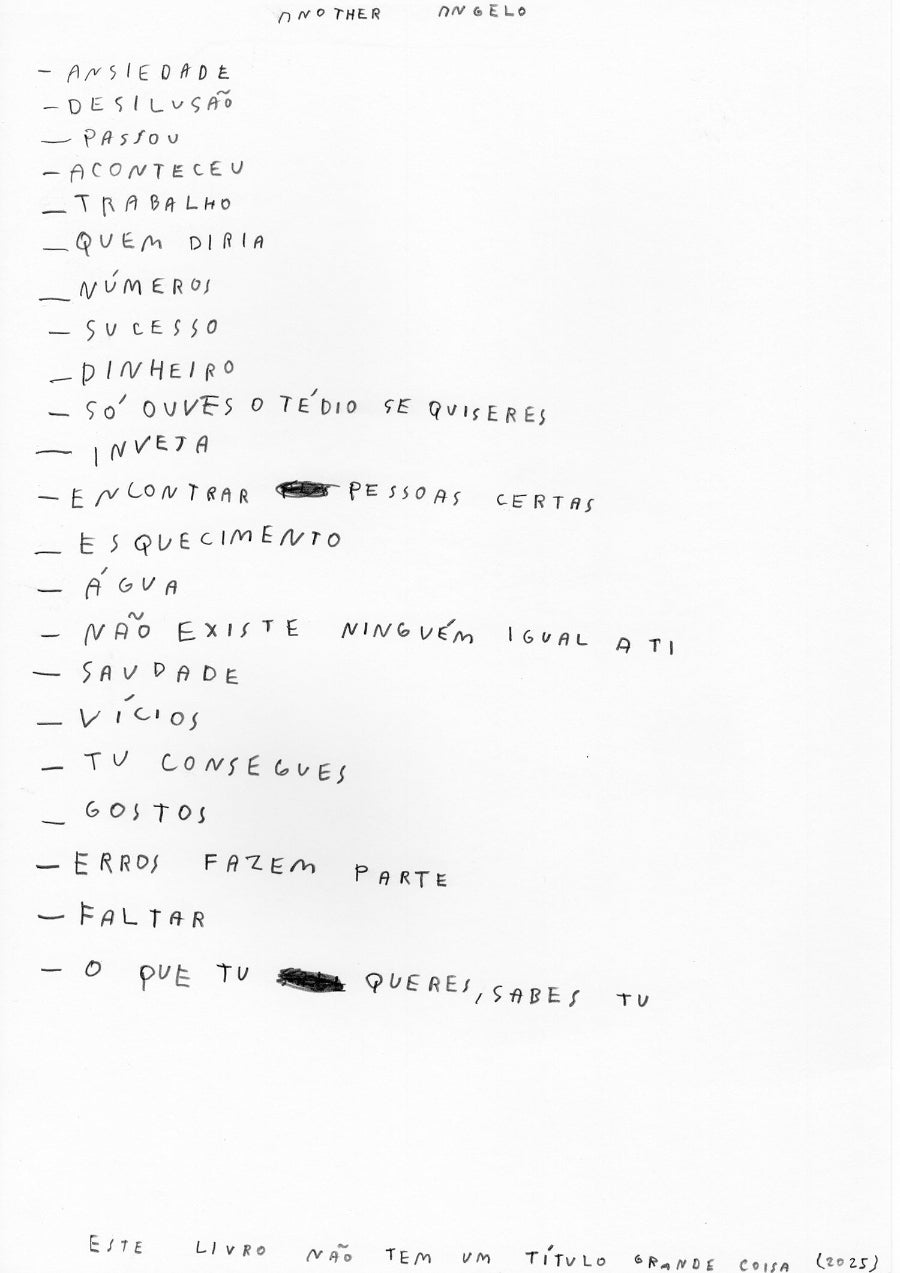 ANOTHER ANGELO
- ANSIEDADE
- DESILUSÃO
- PASSOU
- ACONTECEU
- TRABALHO
- QUEM DIRIA
- NÚMEROS
- SUCESSO
- DINHEIRO
- SÓ OUVES O TÉDIO SE QUISERES
- INVEJA
- ENCONTRAR PESSOAS CERTAS
- ESQUECIMENTO
- ÁGUA
- NÃO EXISTE NINGUÉM IGUAL A TI
- SAUDADE
- VÍCIOS
- TU CONSEGUES
- GOSTOS
- ERROS FAZEM PARTE
- FALTAR
- O QUE TU QUERES, SABES TU
ESTE LIVRO NÃO TEM UM TÍTULO GRANDE COISA (2025)